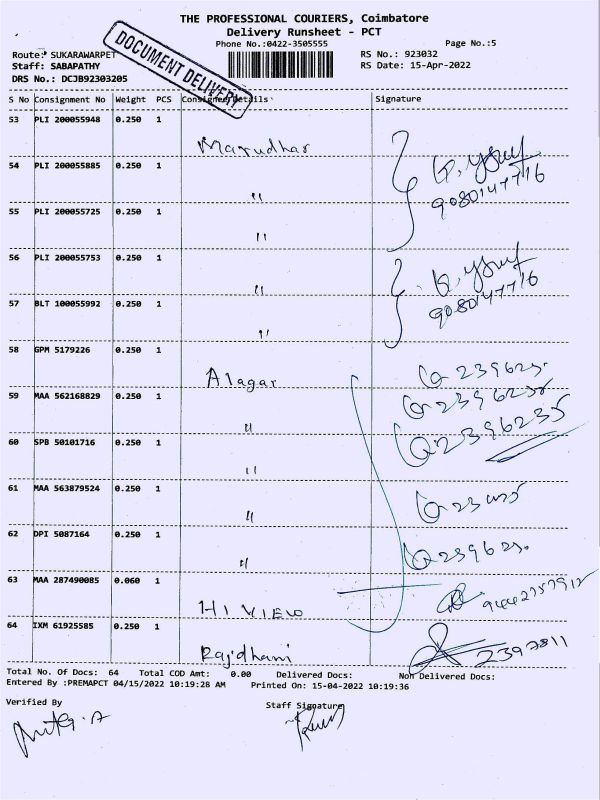 THE PROFESSIONAL COURIERS, Coimbatore
Delivery Runsheet - PCT
Phone No.:0422-3505555 Page No.:5
DOCUMENT DELIVERY
Route: SUKARAWARPET RS No.: 923032
Staff: SABAPATHY RS Date: 15-Apr-2022
DRS No.: DCJB92303205
S No Consignment No Weight PCS Consignee Details Signature
53 PLI 200055948 0.250 1
Marudhar
54 PLI 200055885 0.250 1
" 9080147716
55 PLI 200055725 0.250 1
"
56 PLI 200055753 0.250 1
"
57 BLT 100055992 0.250 1 9080147716
"
58 GPM 5179226 0.250 1
Alagar
59 MAA 562168829 0.250 1
"
60 SPB 50101716 0.250 1 2396235
"
61 MAA 563879524 0.250 1
"
62 DPI 5087164 0.250 1
"
63 MAA 287490085 0.060 1
HI VIEW
64 IXM 61925585 0.250 1
Rajdhani
Total No. Of Docs: 64 Total COD Amt: 0.00 Delivered Docs: Non Delivered Docs:
Entered By :PREMAPCT 04/15/2022 10:19:28 AM Printed On: 15-04-2022 10:19:36
Verified By Staff Signature